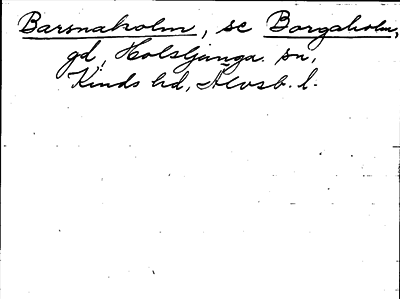 Barsnaholm, se Borgaholm,
gd, Holsljunga. sn,
Kinds hd, Älvsb. l.